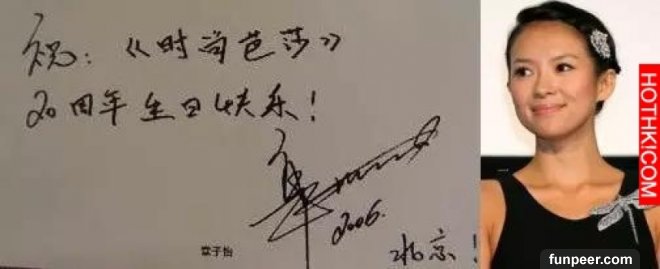 祝：《时尚芭莎》
20周年生日快乐！
章
2006.
章子怡
北京！
HOTHK!COM
funpeer.com